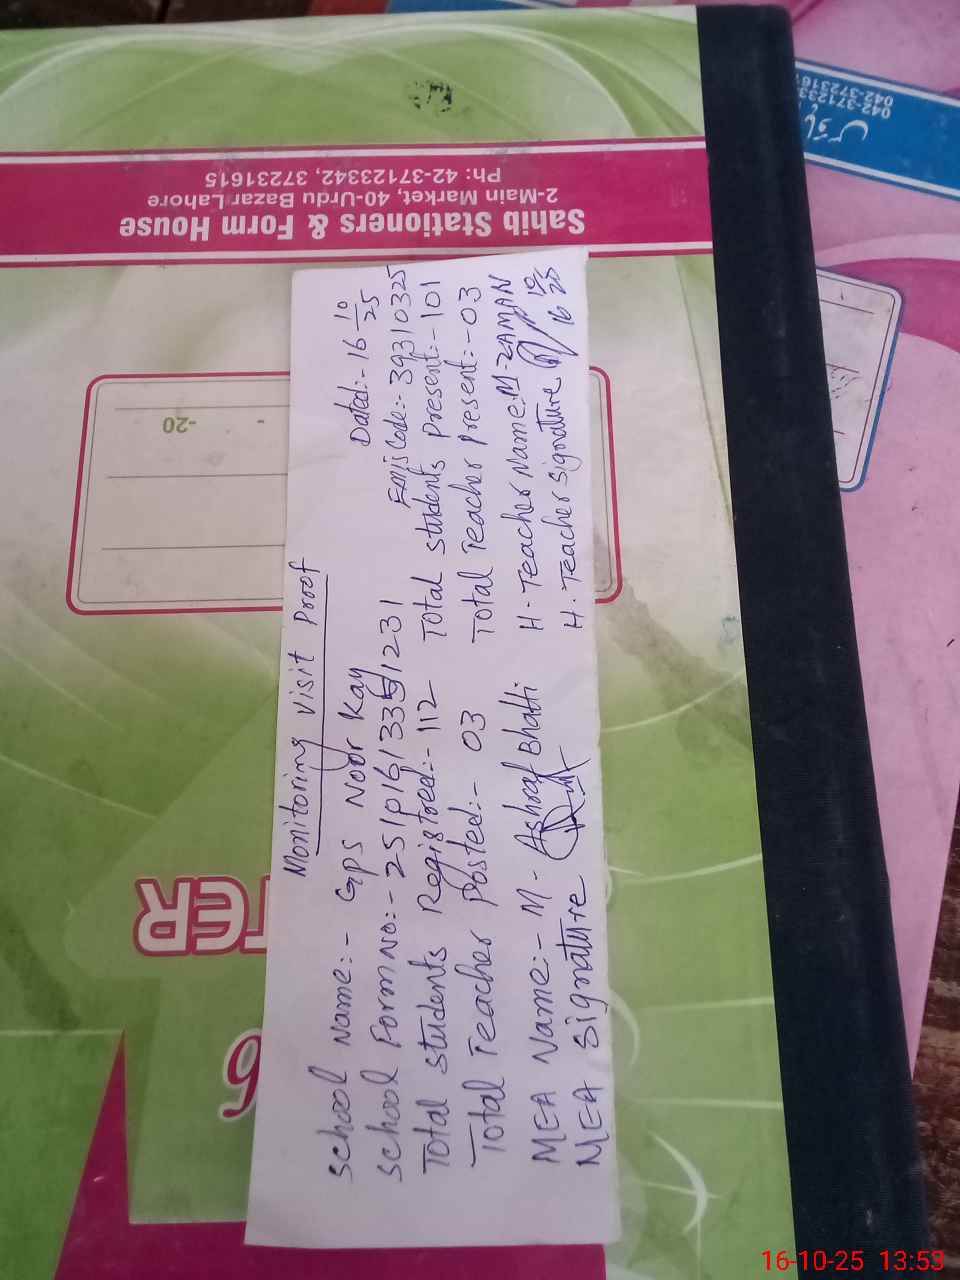 Monitoring Visit Proof
Dated:- 16 10/25
School Name:- GPS Noor Kay
Emis Code:- 39310325
School Form No:- 251P1613351231
Total students present:- 101
Total students Registred:- 112
Total Teacher present:- 03
Total Teacher posted:- 03
H. Teacher Name:- M. ZAMAN
MEA Name:- M. Ashraf Bhatti
H. Teacher signature
16 10/25
MEA signature
Sahib Stationers & Form House
2-Main Market, 40-Urdu Bazar Lahore
Ph: 42-37123342, 37231615
-20
TER
6
16-10-25 13:53